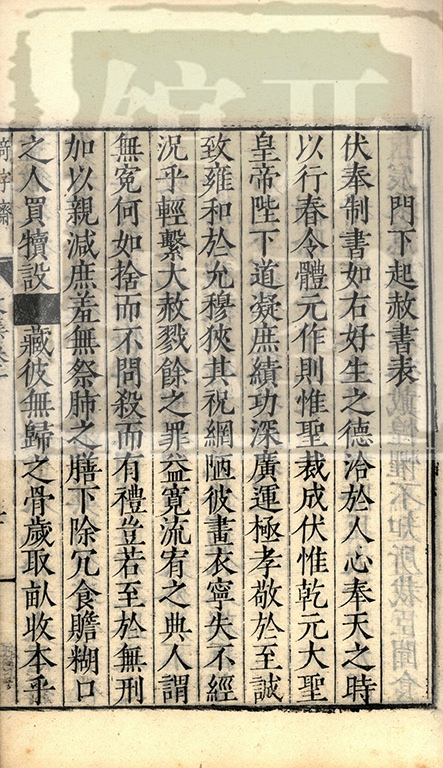 門下起赦書表
伏奉制書如右好生之德洽於人心奉天之時
以行春令體元作則惟聖裁成伏惟乾元大聖
皇帝陛下道凝庶績功深廣運極孝敬於至誠
致雍和於允穆狹其祝網陋彼畫衣寧失不經
況乎輕繫大赦戮餘之罪益寬流宥之典人謂
無冤何如捨而不問殺而有禮豈若至於無刑
加以親減庶羞無祭肺之膳下除冗食贍糊口
之人買犢設藏彼無歸之骨歲取畝收本乎